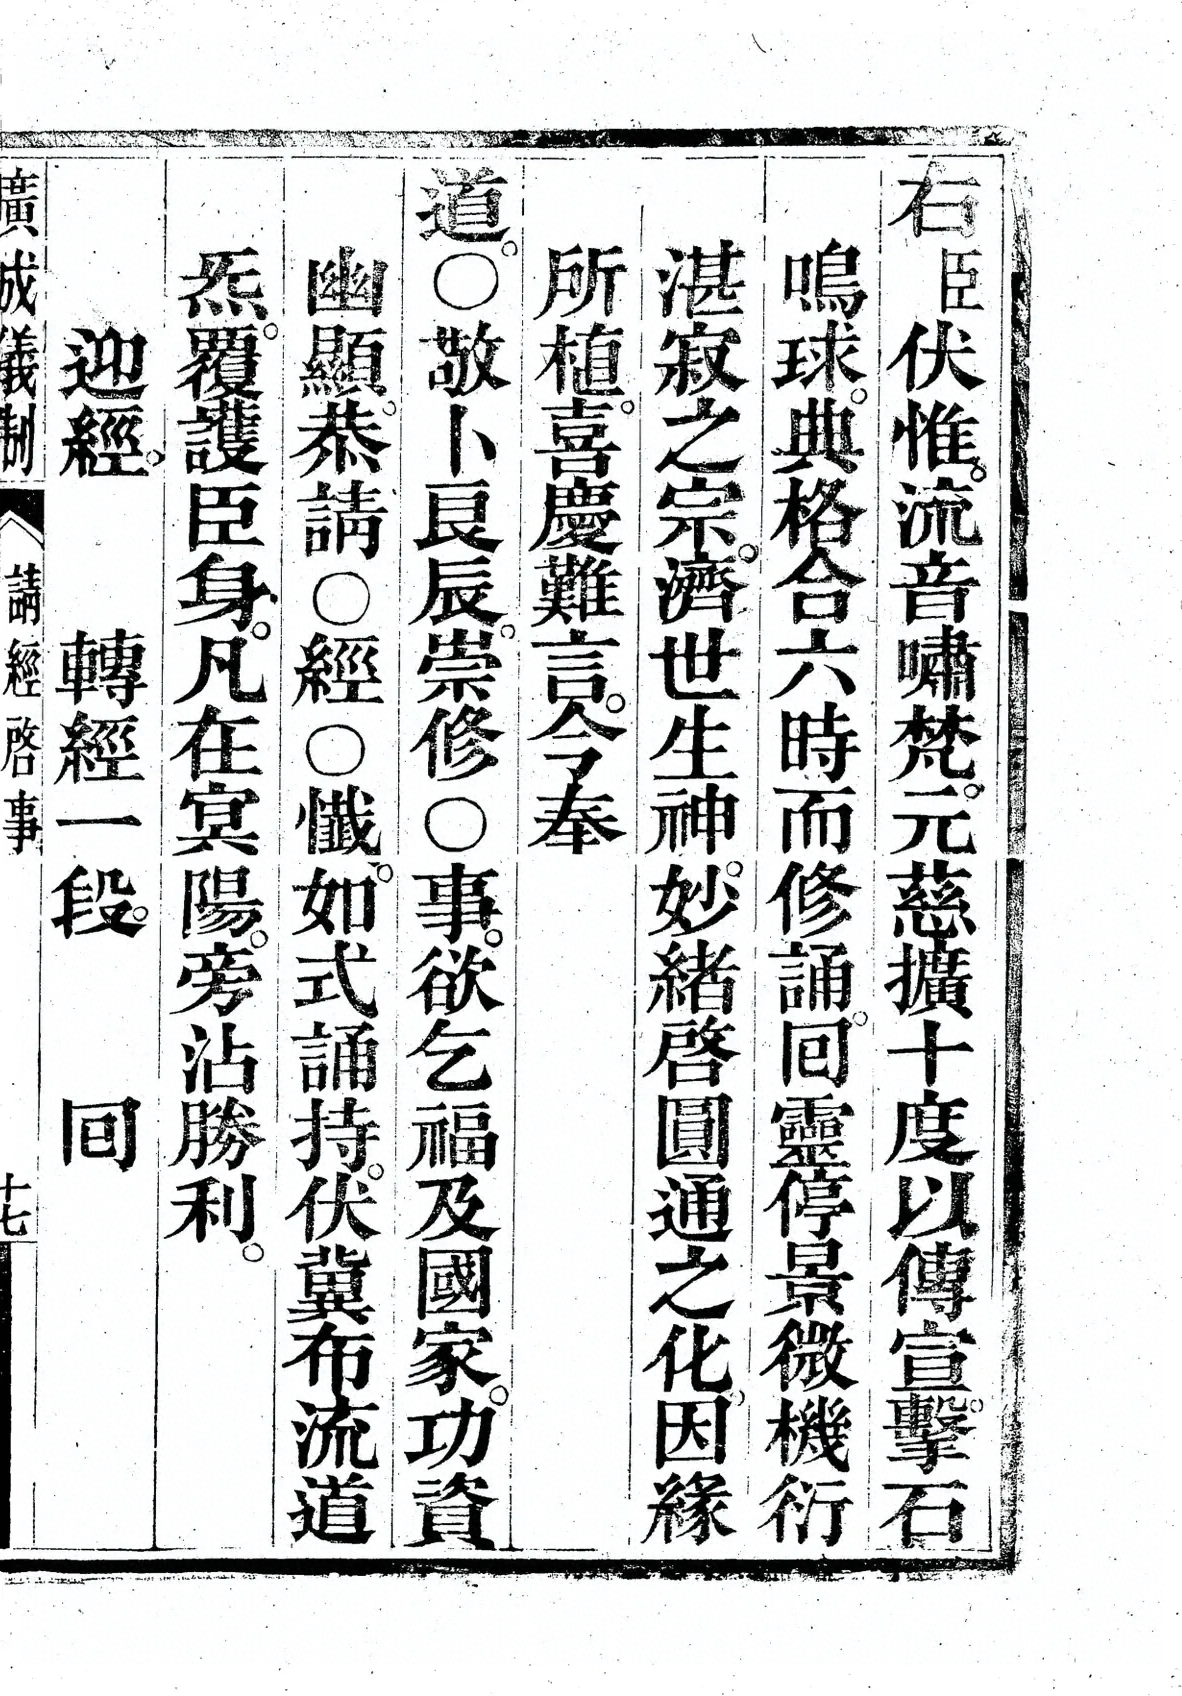 右臣伏惟。流音嘯梵。元慈擴十度以傳宣。擊石
鳴球。典格合六時而修誦。回靈停景微機衍
湛寂之宗。濟世生神。妙緒啓圓通之化。因緣
所植。喜慶難言。今奉
道。○敬卜良辰。崇修○事。欲乞福及國家。功資
幽顯。恭請○經○懺。如式誦持。伏冀布流道
炁。覆護臣身。凡在冥陽。旁沾勝利。
迎經。　轉經一段。　回
廣成儀制　請經啓事　十七